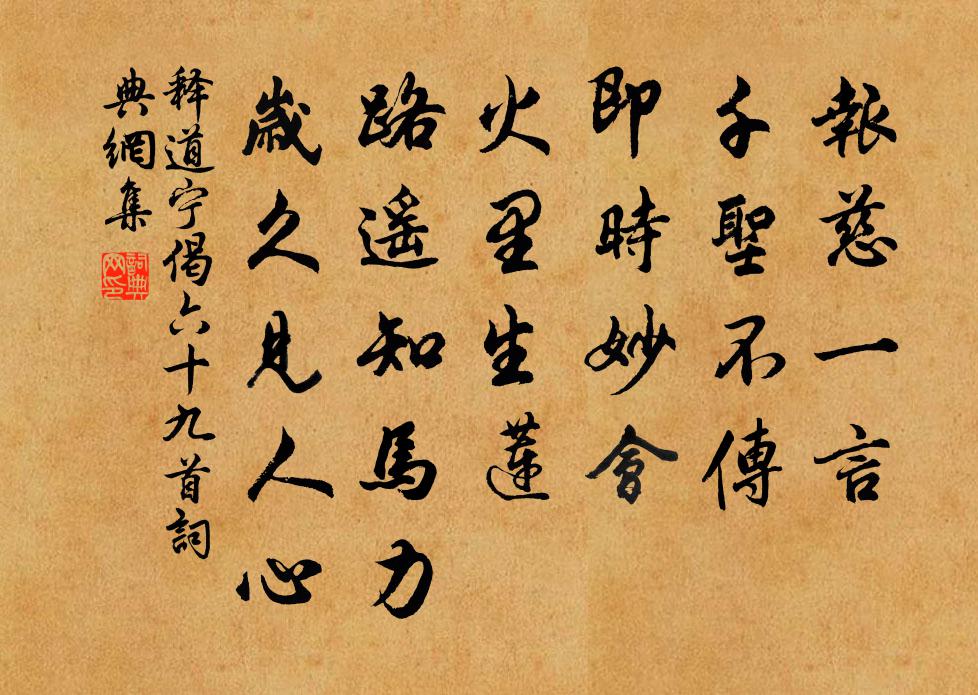 報慈一言
千聖不傳
即時妙會
火里生蓮
路遥知馬力
歲久見人心
释道宁偈六十九首詞
典網集
詞典
网印